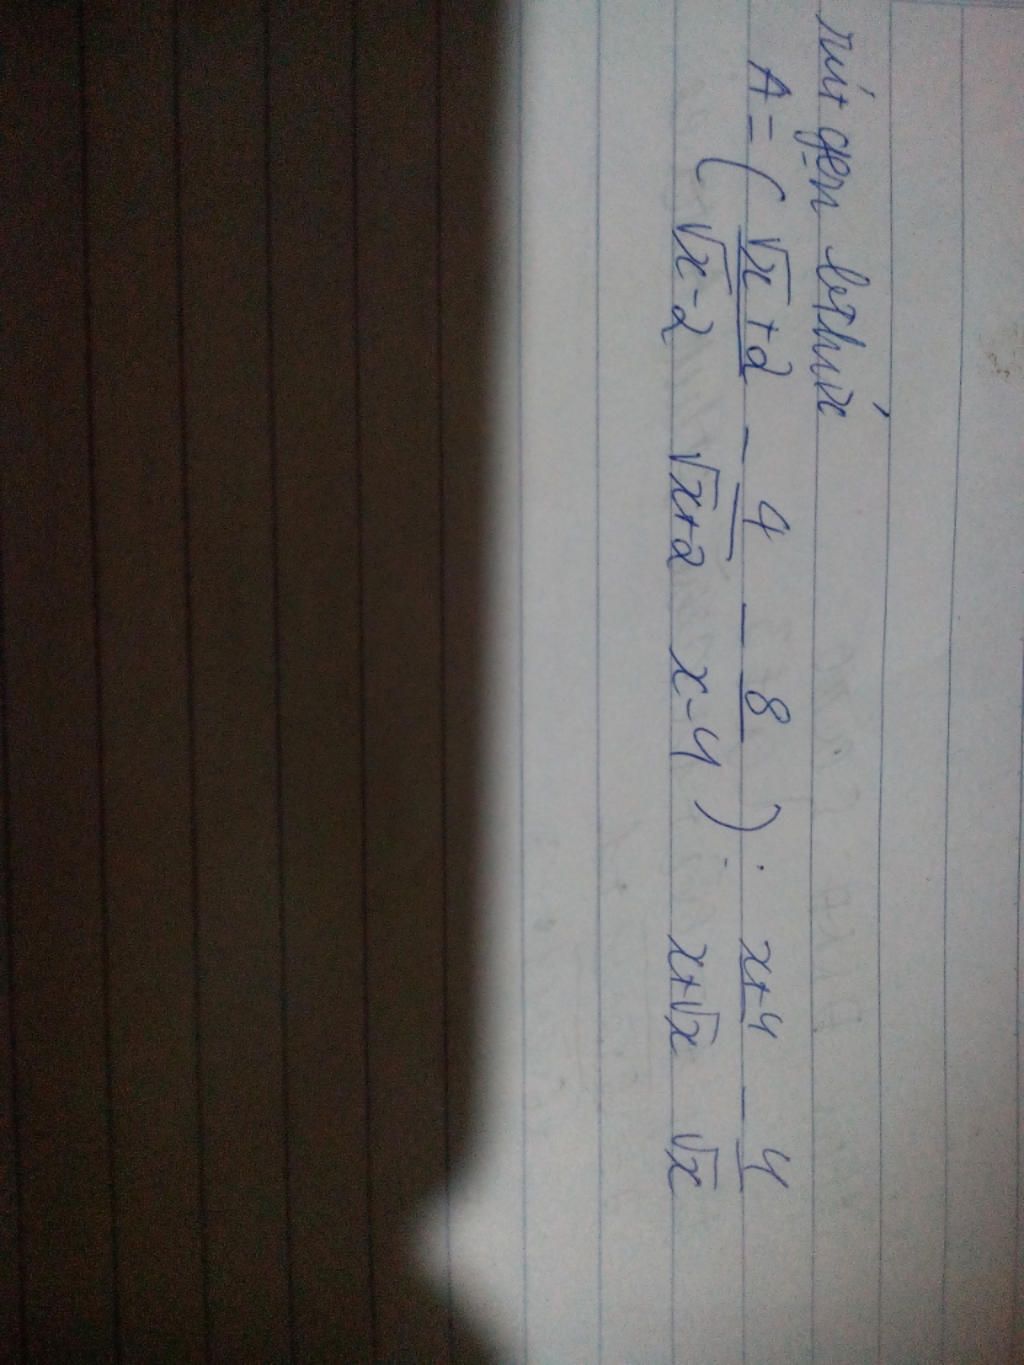 rút gọn bthức
A = ( √x+2 / √x-2 - 4 / √x+2 - 8 / x-4 ) . x+4 / x+√x - 4 / √x